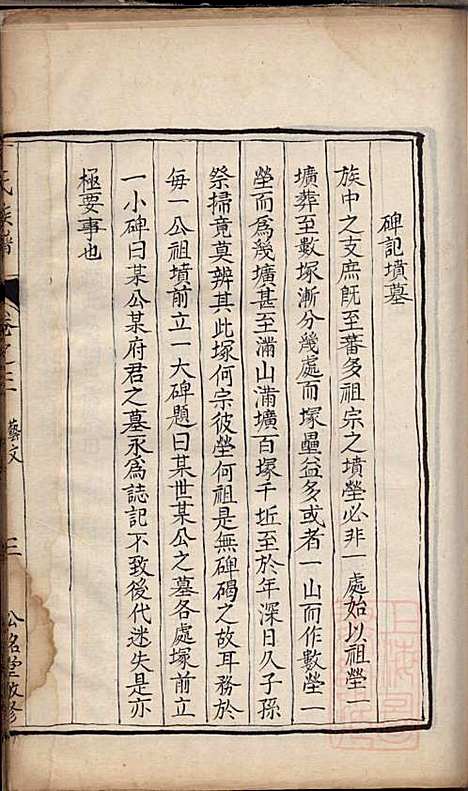 碑記墳墓
族中之支庶旣至蕃多祖宗之墳塋必非一處始以祖塋一
壙葬至數塚漸分幾處而塚壘益多或者一山而作數塋一
塋而爲幾壙甚至滿山滿壙百塚千近至於年深日久子孫
祭掃竟莫辨其此塚何宗彼塋何祖是無碑碣之故耳務於
每一公祖墳前立一大碑題曰某世某公之墓各處塚前立
一小碑曰某公某府君之墓永爲誌記不致後代迷失是亦
極要事也
氏族譜
卷之三
藝文
三